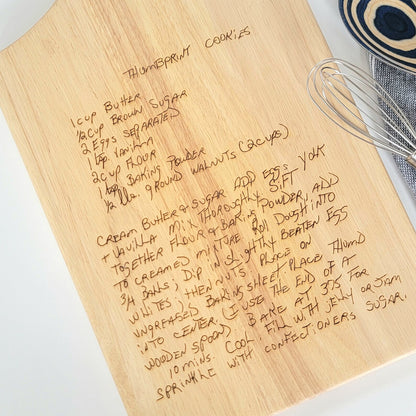 THUMBPRINT COOKIES
1 CUP BUTTER
1/2 CUP BROWN SUGAR
2 EGGS SEPARATED
1 tsp. VANILLA
2 CUP FLOUR
1 tsp. BAKING POWDER
1/2 lb GROUND WALNUTS (2 CUPS)
CREAM BUTTER & SUGAR ADD EGGS YOLK
+ VANILLA MIX THOROUGHLY SIFT
TOGETHER FLOUR & BAKING POWDER, ADD
TO CREAMED MIXTURE. ROLL DOUGH INTO
3/4 BALLS; DIP IN SLIGHTLY BEATEN EGG
WHITES; THEN NUTS. PLACE ON
UNGREASED BAKING SHEET PLACE THUMB
INTO CENTER. (USE THE END OF A
WOODEN SPOON) BAKE AT 375 FOR
10 MINS. COOL FILL WITH JELLY OR JAM
SPRINKLE WITH CONFECTIONERS SUGAR.